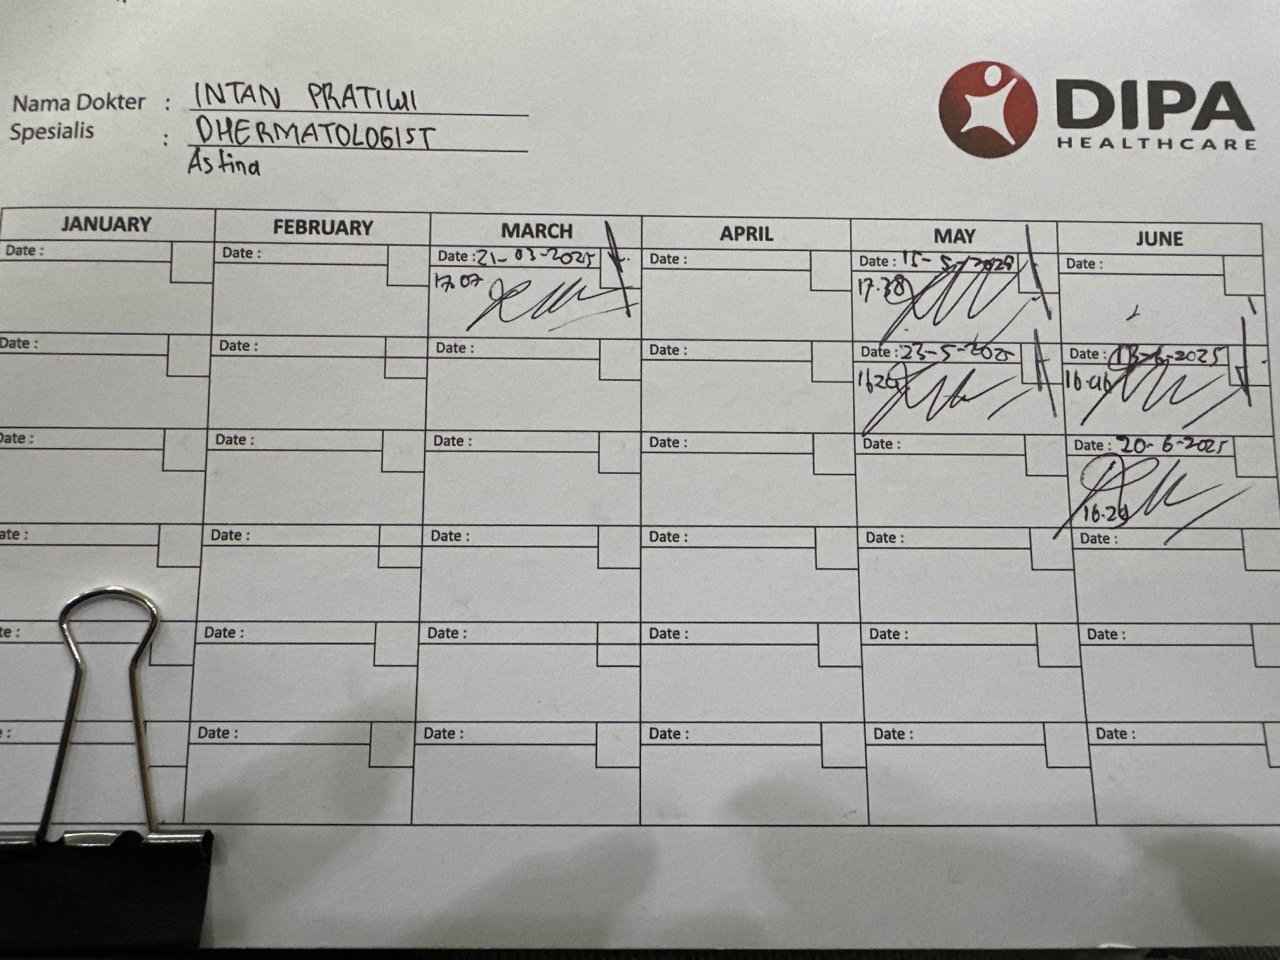 Nama Dokter : INTAN PRATIWI
Spesialis : DHERMATOLOGIST
Astina
DIPA
HEALTHCARE
JANUARY FEBRUARY MARCH APRIL MAY JUNE
Date : Date : Date : 21-03-2025 Date : Date : 15-5-2025 Date :
17.07 17.38
Date : Date : Date : Date : Date : 23-5-2025 Date : 13-6-2025
Date : Date : Date : Date : Date : Date : 20-6-2025
ate : Date : Date : Date : Date : Date :
te : Date : Date : Date : Date : Date :
: Date : Date : Date : Date : Date :